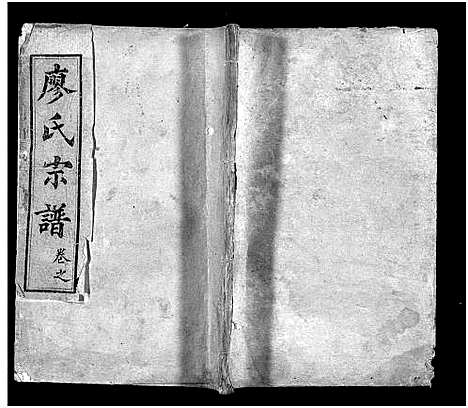 廖氏宗譜
卷之